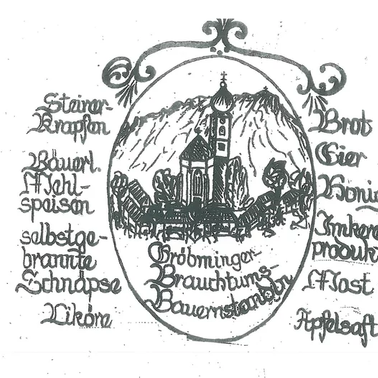 Steirer-
Krapfen
Bäuerl.
Mehl-
speisen
selbstge-
brannte
Schnäpse
Liköre
Gröbminger
Brauchtums-
Brot
Eier
Honi
Imkere
produkt
Most
Apfelsaft